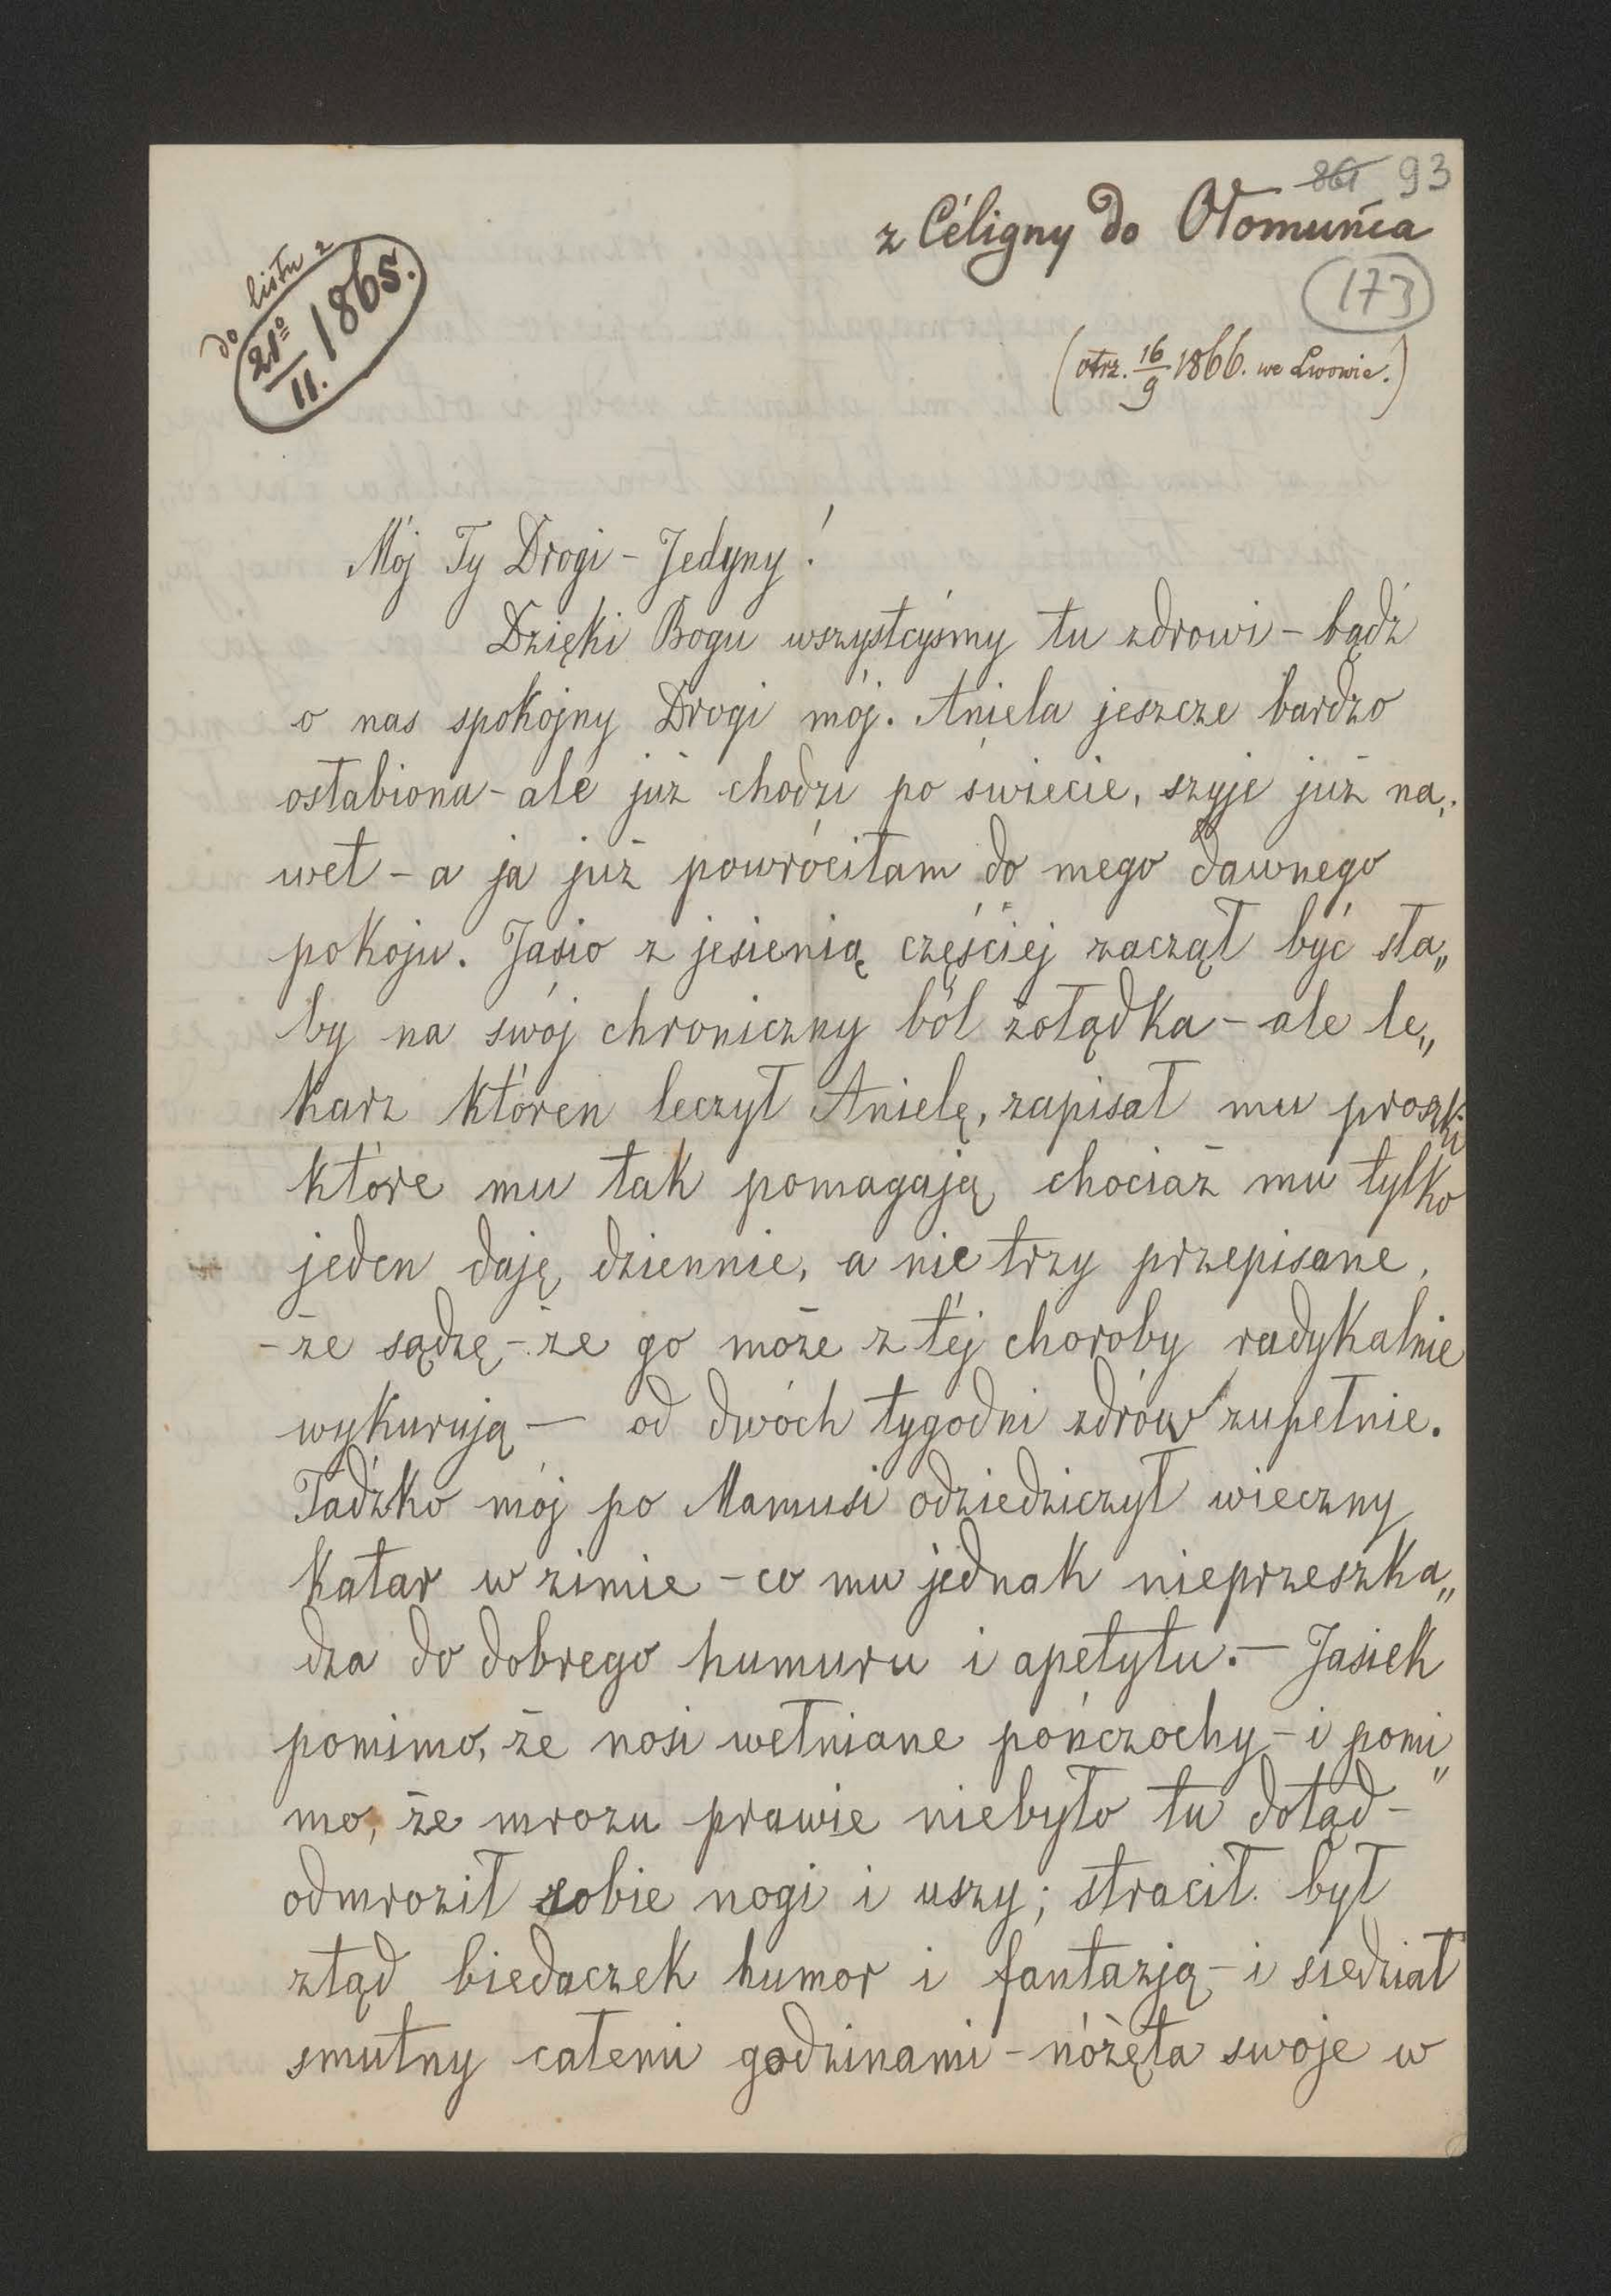 861 93
z Céligny do Ołomuńca
173
do listu z
21º/11. 1865.
(otrz. 16/9 1866. we Lwowie.)
Mój Ty Drogi – Jedyny!
Dzięki Bogu wszystcyśmy tu zdrowi – bądź
o nas spokojny Drogi mój. Aniela jeszcze bardzo
osłabiona – ale już chodzi po świecie, szyje już na„
wet – a ja już powróciłam do mego dawnego
pokoju. Jasio z jesienią częściej zaczął być sła„
by na swój chroniczny ból żołądka – ale le„
karz któren leczył Anielę, zapisał mu proszki
które mu tak pomagają chociaż mu tylko
jeden daję dziennie, a nie trzy przepisane,
– że sądzę – że go może z téj choroby radykalnie
wykurują — od dwóch tygodni zdrów zupełnie.
Tadźko mój po Mamusi odziedziczył wieczny
katar w zimie – co mu jednak nieprzeszka„
dza do dobrego humuru i apetytu. — Jasiek
pomimo, że nosi wełniane pończochy – i pomi„
mo, że mrozu prawie niebyło tu dotąd –
odmroził sobie nogi i uszy; stracił był
ztąd biedaczek humor i fantazją – i siedział
smutny całemi godzinami – nóżęta swoje w